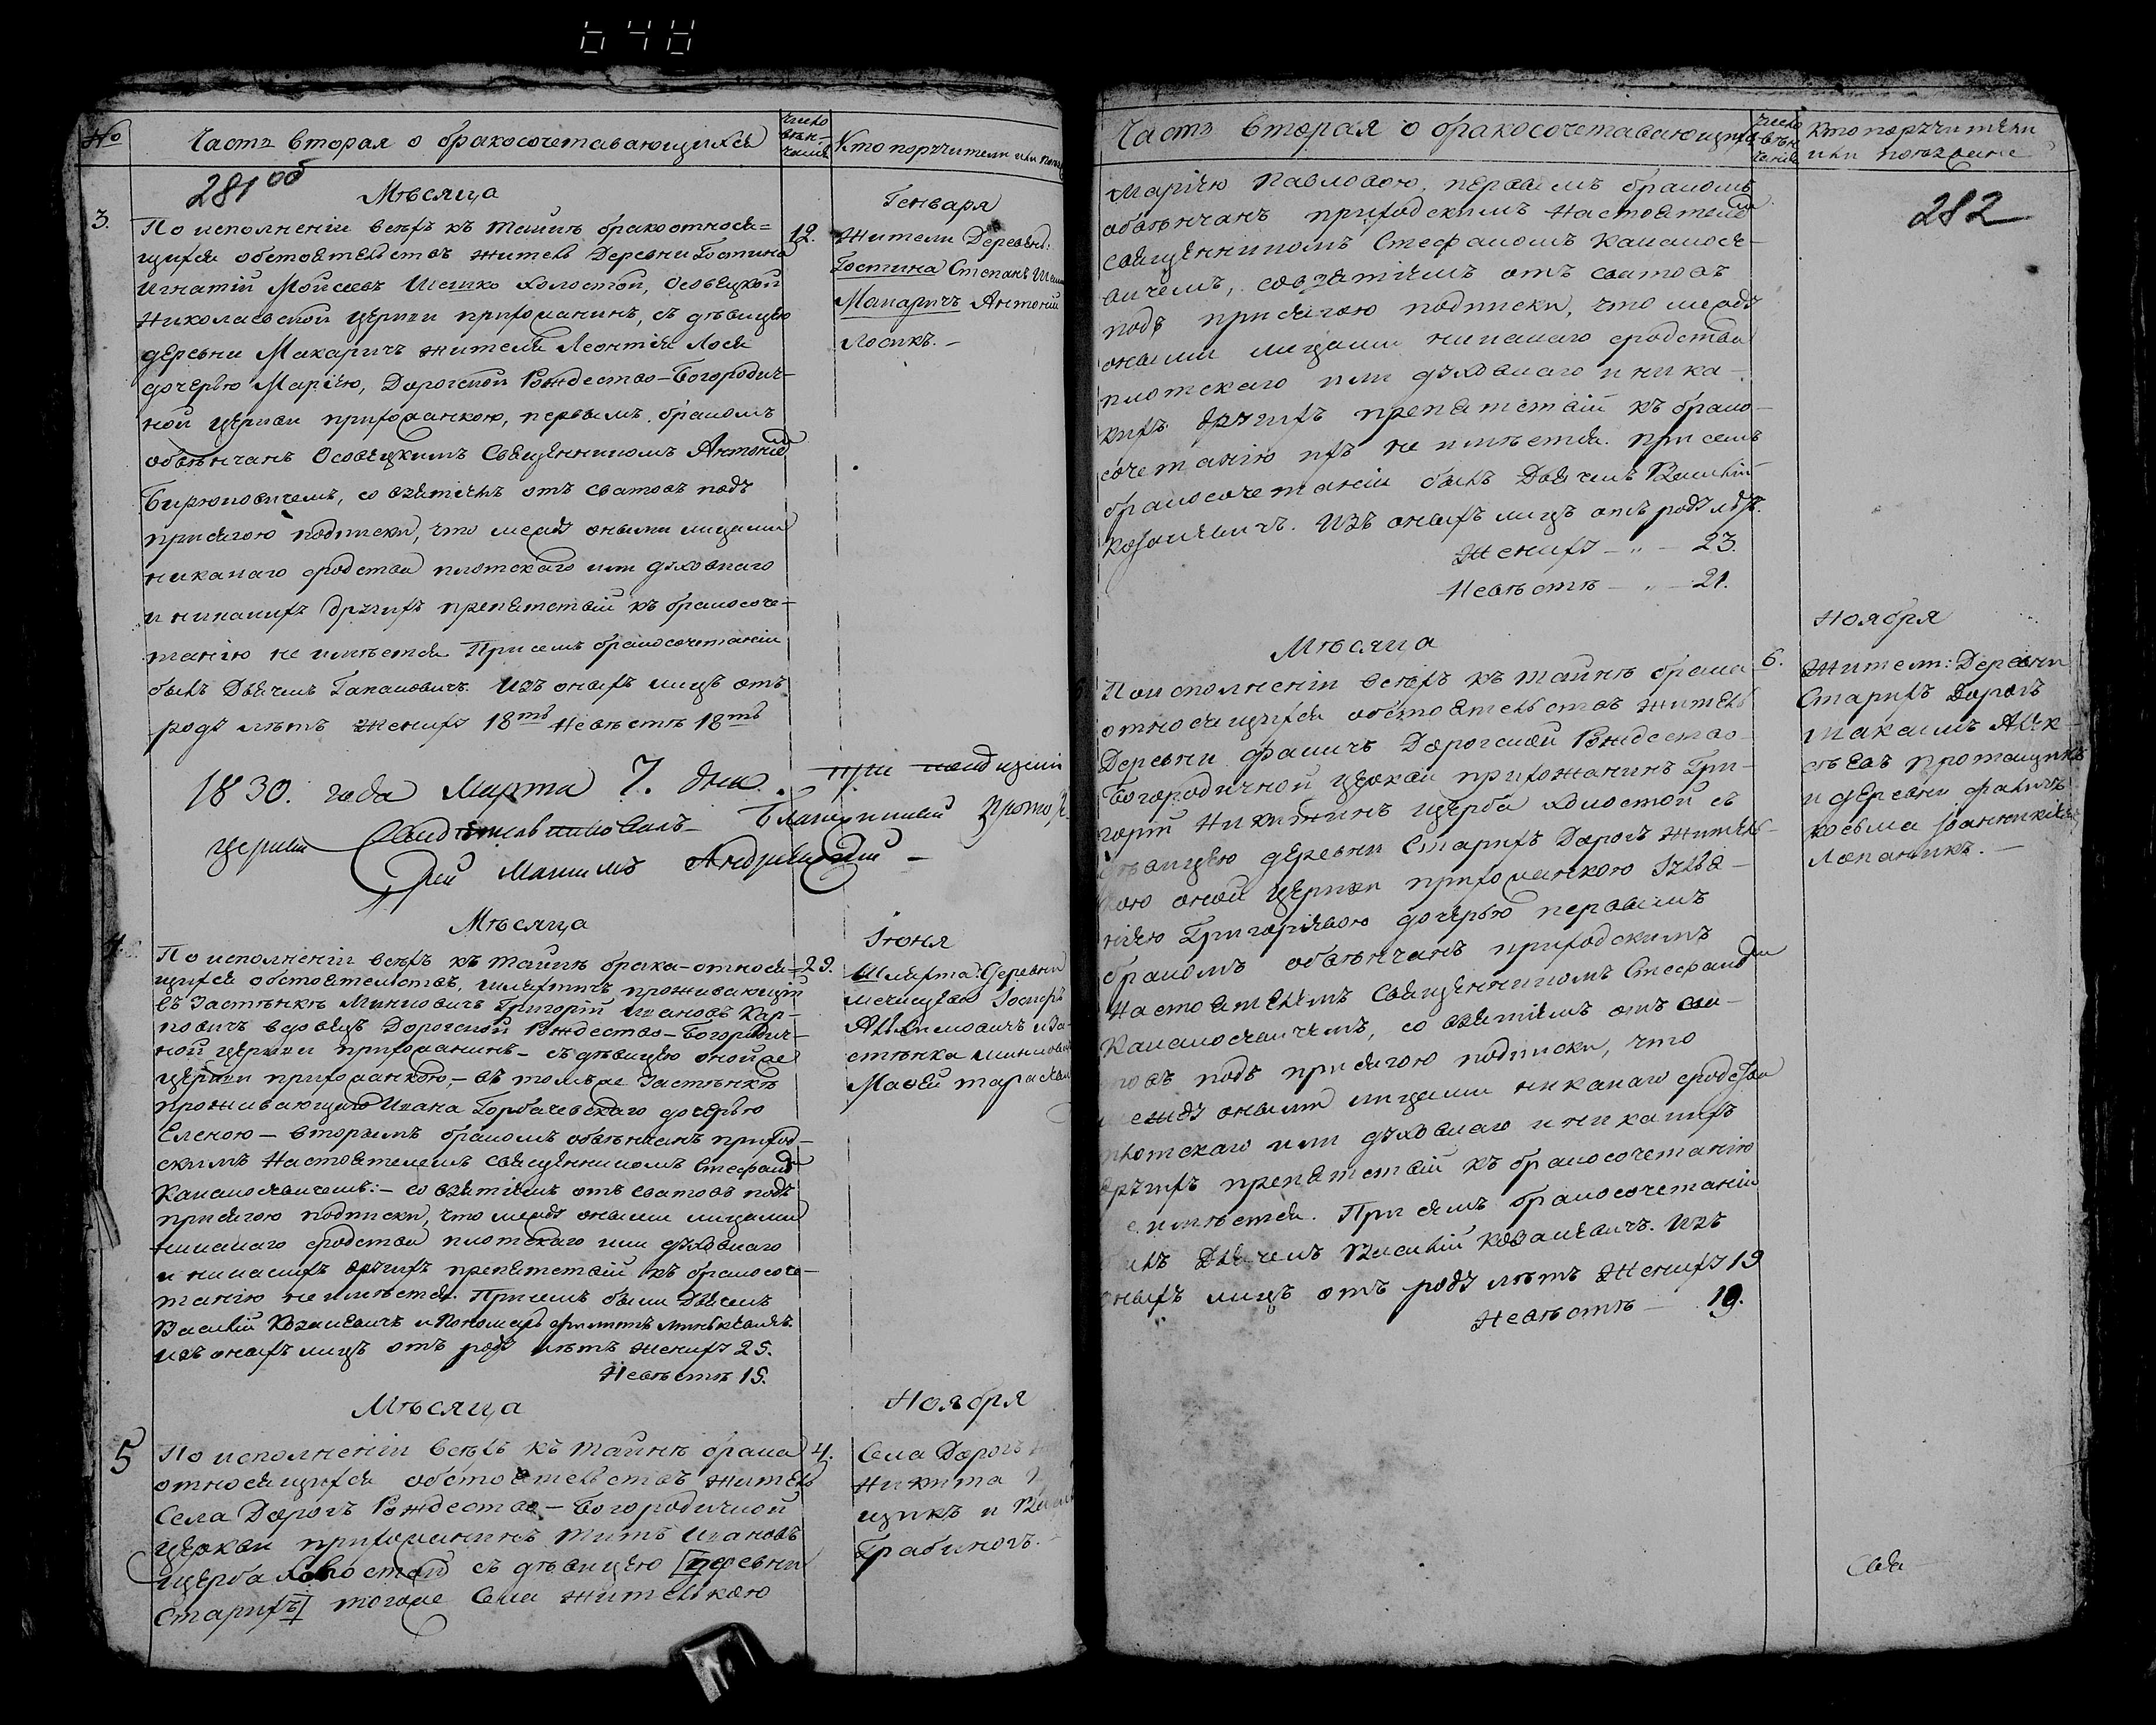 648
№
Часть вторая о бракосочетавающихся
число вѣн-чанія
Кто поручители или
281 об
Мѣсяца
Генваря
3.
По исполненіи всѣхъ къ таинѣ брако относя=
щихся обстоятельствъ житель Деревни Гостина
Игнатій Мойсеевъ холостой, Осовецкой
Николаевской церкви прихожанинъ, съ дѣвицею
деревни Макаричъ жителя Леонтія Лося
дочерью Маріею, Дорогской Рождество-Богородич-
ной церкви прихожанкою, первымъ бракомъ
обвѣнчанъ Осовецкимъ Священникомъ Антоніем
Бирюковичемъ, со взятіемъ отъ сватовъ подъ
присягою подписки, что между оными лицами
никакаго сродства плотскаго или духовнаго
и никакихъ другихъ препятствій къ бракосоче-
танію не имѣется. При семъ бракосочетаніи
былъ Дьячекъ Гапановичъ. Изъ оныхъ лицъ отъ
роду лѣтъ Жениху 18ть Невѣстѣ 18ть
12.
Жители Деревни:
Гостина Степанъ
Макаричъ Антоній
Лосикъ. –
1830. года Марта 7. дня. при
церкви Свидѣтельствовалъ Благочинный Прото
рей Максимъ
Мѣсяца
Іюня
4.
По исполненіи всѣхъ къ таинѣ брака-относя=
щихся обстоятельствъ, шляхтичъ проживающій
въ Застѣнкѣ Минковичъ Григорій Ивановъ Кар-
повичъ вдовецъ Дорогской Рождество-Богородич-
ной церкви прихожанинъ – съ дѣвицею оной же
церкви прихожанкою, – въ томъ же Застѣнкѣ
проживающаго Ивана Горбачевскаго дочерью
Еленою – вторымъ бракомъ обвѣнчанъ приход-
скимъ Настоятелемъ священникомъ Стефаном
:– со взятіемъ отъ сватовъ подъ
присягою подписки, что между оными лицами
никакаго сродства плотскаго или духовнаго
и никакихъ другихъ препятствій къ бракосоче-
танію не имѣется. При семъ были Дьячекъ
Василій и Пономарь
Изъ оныхъ лицъ отъ роду лѣтъ жениху 25.
Невѣстѣ 15.
29.
Шляхта: деревни
Мѣсяца
Ноября
5
По исполненіи всѣхъ къ таинѣ брака
относящихся обстоятельствъ житель
Села Дорогъ Рождество-Богородичной
церкви прихожанинъ Титъ Ивановъ
Щерба холостой съ дѣвицею [деревни
Старихъ] тогоже Села жителькою
4.
Села Дорогъ
Никита
щикъ и
Грабинокъ. –
Часть вторая о бракосочетавающихся
число вѣн чанія
Кто поручители
или поѣзжане
282
Маріею Павловою, первымъ бракомъ
обвѣнчанъ приходскимъ Настоятелем
священникомъ Стефаномъ
вичемъ, со взятіемъ отъ сватовъ
подъ присягою подписки, что между
оными лицами никакаго сродства
плотскаго или духовнаго и ника-
кихъ другихъ препятствій къ брако-
сочетанію ихъ не имѣется. При семъ
бракосочетаніи былъ Дьячекъ Василій
Изъ оныхъ лицъ отъ роду лѣтъ.
Жениху – „ – 23.
Невѣстѣ – „ – 21.
Мѣсяца
Ноября
По исполненіи всѣхъ къ таинѣ брака
относящихся обстоятельствъ житель
Деревни Фаличъ Дорогской Рождество-
Богородичной церкви прихожанинъ Гри-
горій Никитинъ Щерба холостой съ
дѣвицею деревни Старихъ Дорогъ житель-
кою оной церкви прихожанкою Іуліа-
ніею Григоріевою дочерью первымъ
бракомъ обвѣнчанъ приходскимъ
Настоятелемъ священникомъ Стефаном
, со взятіемъ отъ сва-
товъ подъ присягою подписки, что
между оными лицами никакаго сродства
плотскаго или духовнаго и никакихъ
другихъ препятствій къ бракосочетанію
не имѣется. При семъ бракосочетаніи
былъ Дьячекъ Василій Изъ
оныхъ лицъ отъ роду лѣтъ Жениху 19
Невѣстѣ – 19.
6.
Жители: Деревни
Старихъ Дорогъ
Максимъ Алек-
сѣевъ Протащикъ
и деревни Фаличъ
Косьма
Лопаникъ. –